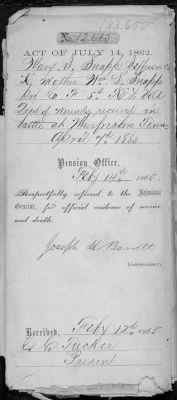 132.600
No 12.645
ACT OF JULY 14, 1862.
Mary S. Snapp
mother Wm. S. Snapp
Co F 5th
Died of wounds received in
battle at
April 7th 1865
Pension Office,
Feby 14th 1865.
Respectfully referred to the Adjutant
General, for official evidence of service
and death.
Joseph H Barrett
Commissioner.
Received, Feby 17th 1865
C B Tucker
Present